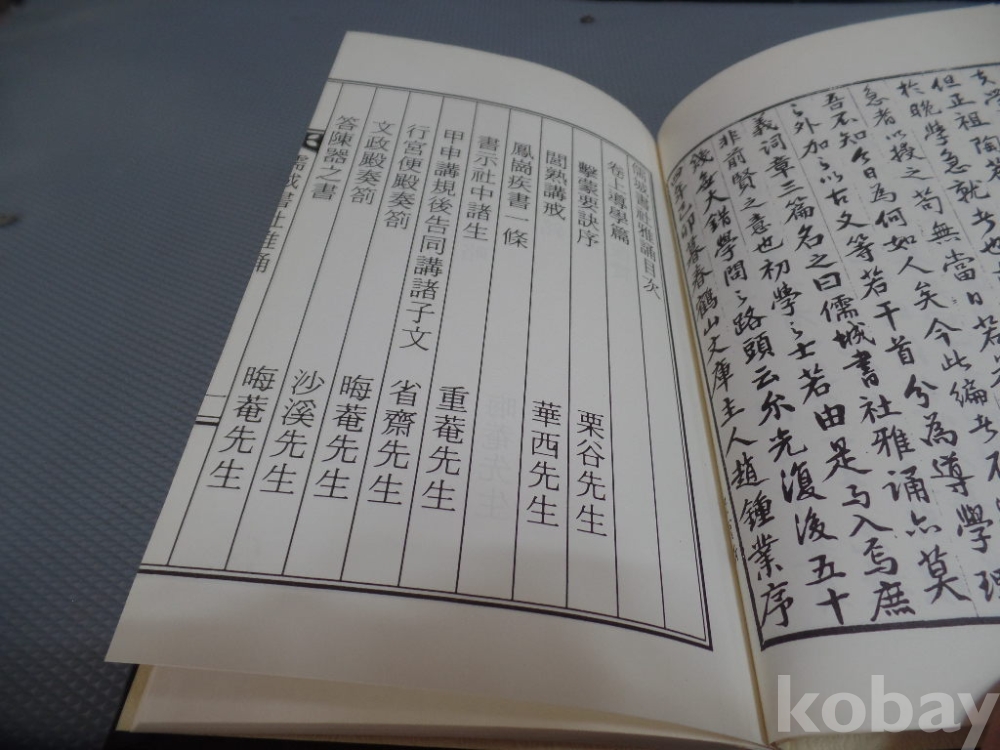 支學
但正祖陶若
於晚學急就者也
急者以授之苟無當日若
吾不知今日為何如人矣今此編者
之外加之以古文等若干首分為導學理
義詞章三篇名之曰儒城書社雅誦亦莫
非前賢之意也初學之士若由是而入焉庶
幾無大錯學問之路頭云爾光復後五十
四年己卯暮春鶴山文庫主人趙鍾業序
儒城書社雅誦目次
卷上導學篇
擊蒙要訣序 栗谷先生
閭塾講戒 華西先生
鳳崗疾書一條
書示社中諸生 重菴先生
甲申講規後告同講諸子文 省齋先生
行宮便殿奏箚 晦菴先生
文政殿奏箚 沙溪先生
答陳器之書 晦菴先生
儒城書社雅誦 一
kobay